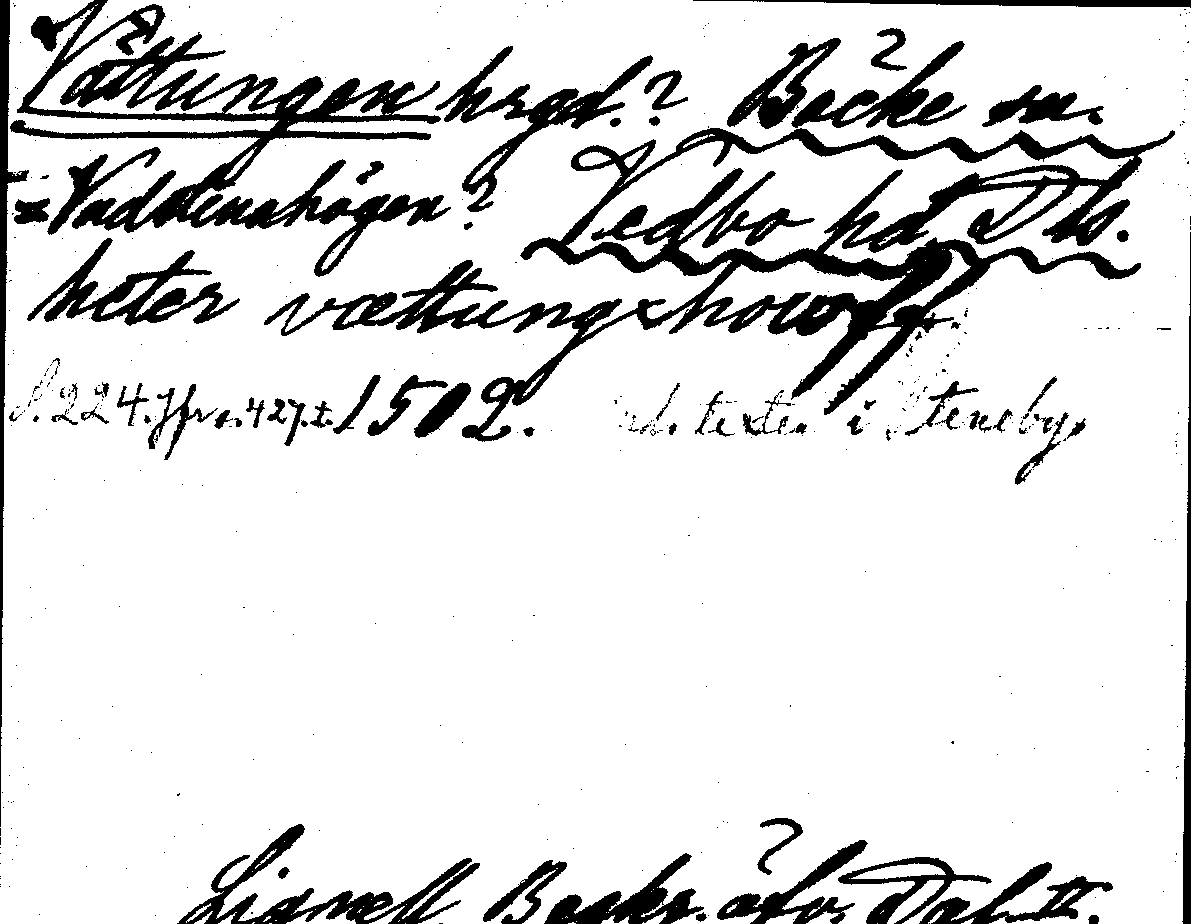 Vättungen hrgd.? Bäcke sn.
= Vadstenahögen? Vedbo hd Dls.
heter vættungxhowff
s. 224. Jfr s. 427. 1502. i Steneby.
Lignell Beskr. öfv. Dal